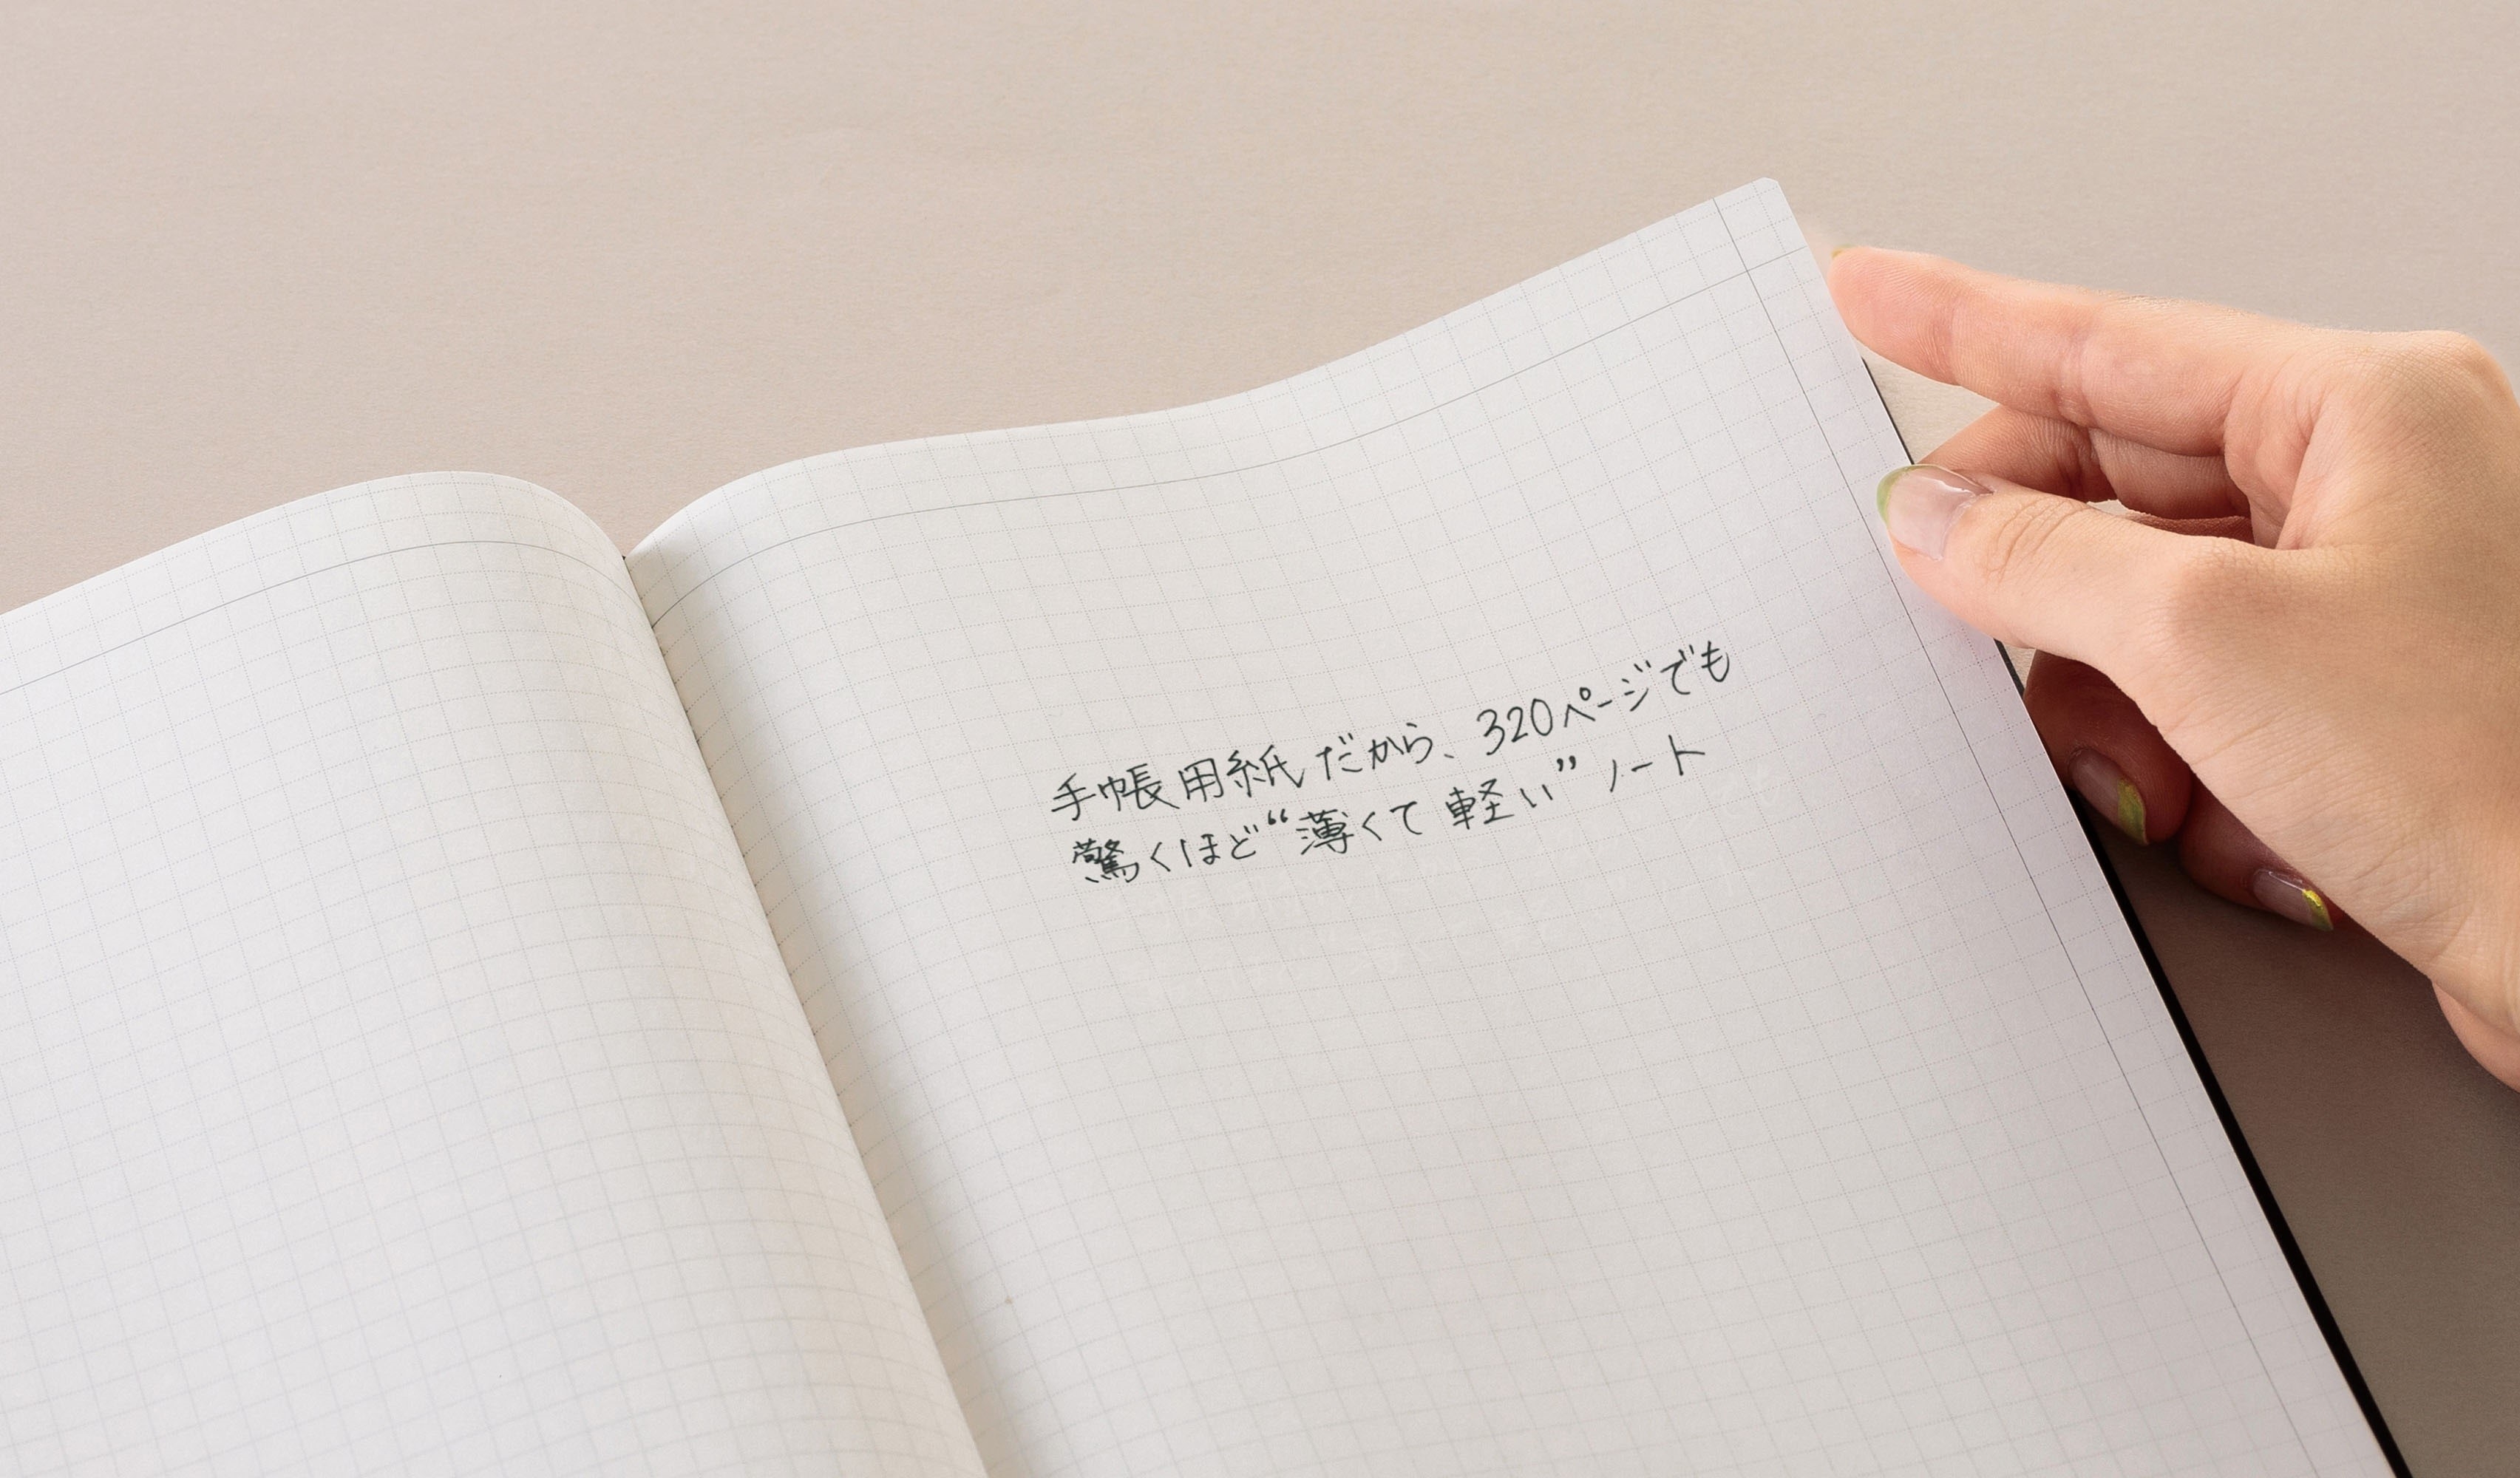 手帳用紙だから、320ページでも
驚くほど“薄くて軽い”ノート